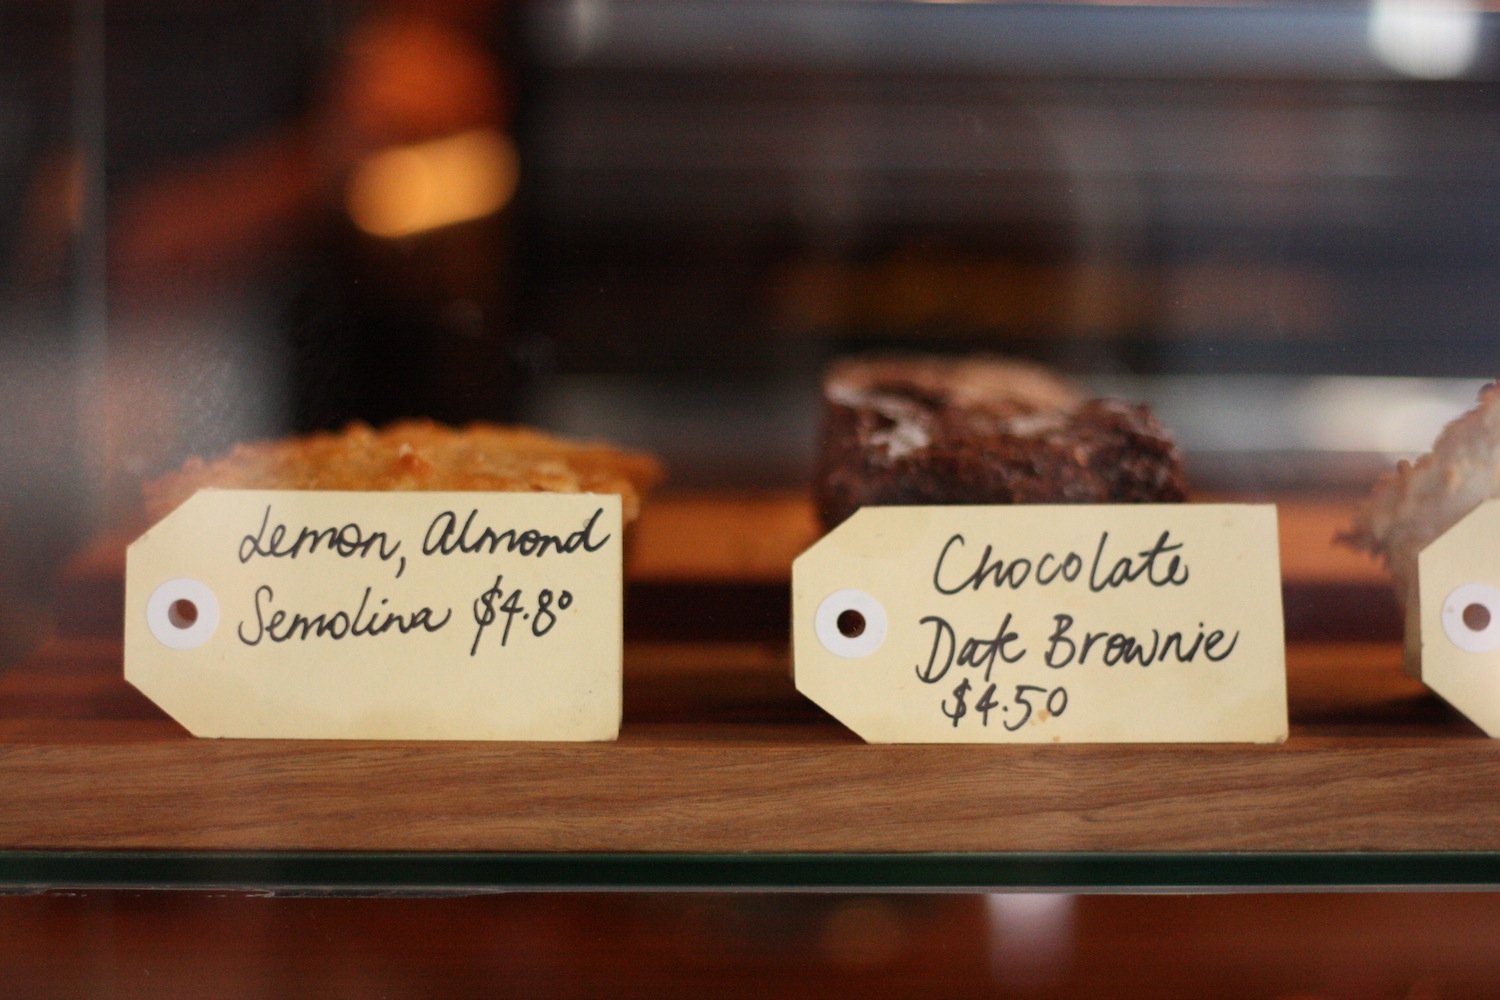 Lemon, Almond
Semolina $4.80
Chocolate
Date Brownie
$4.50